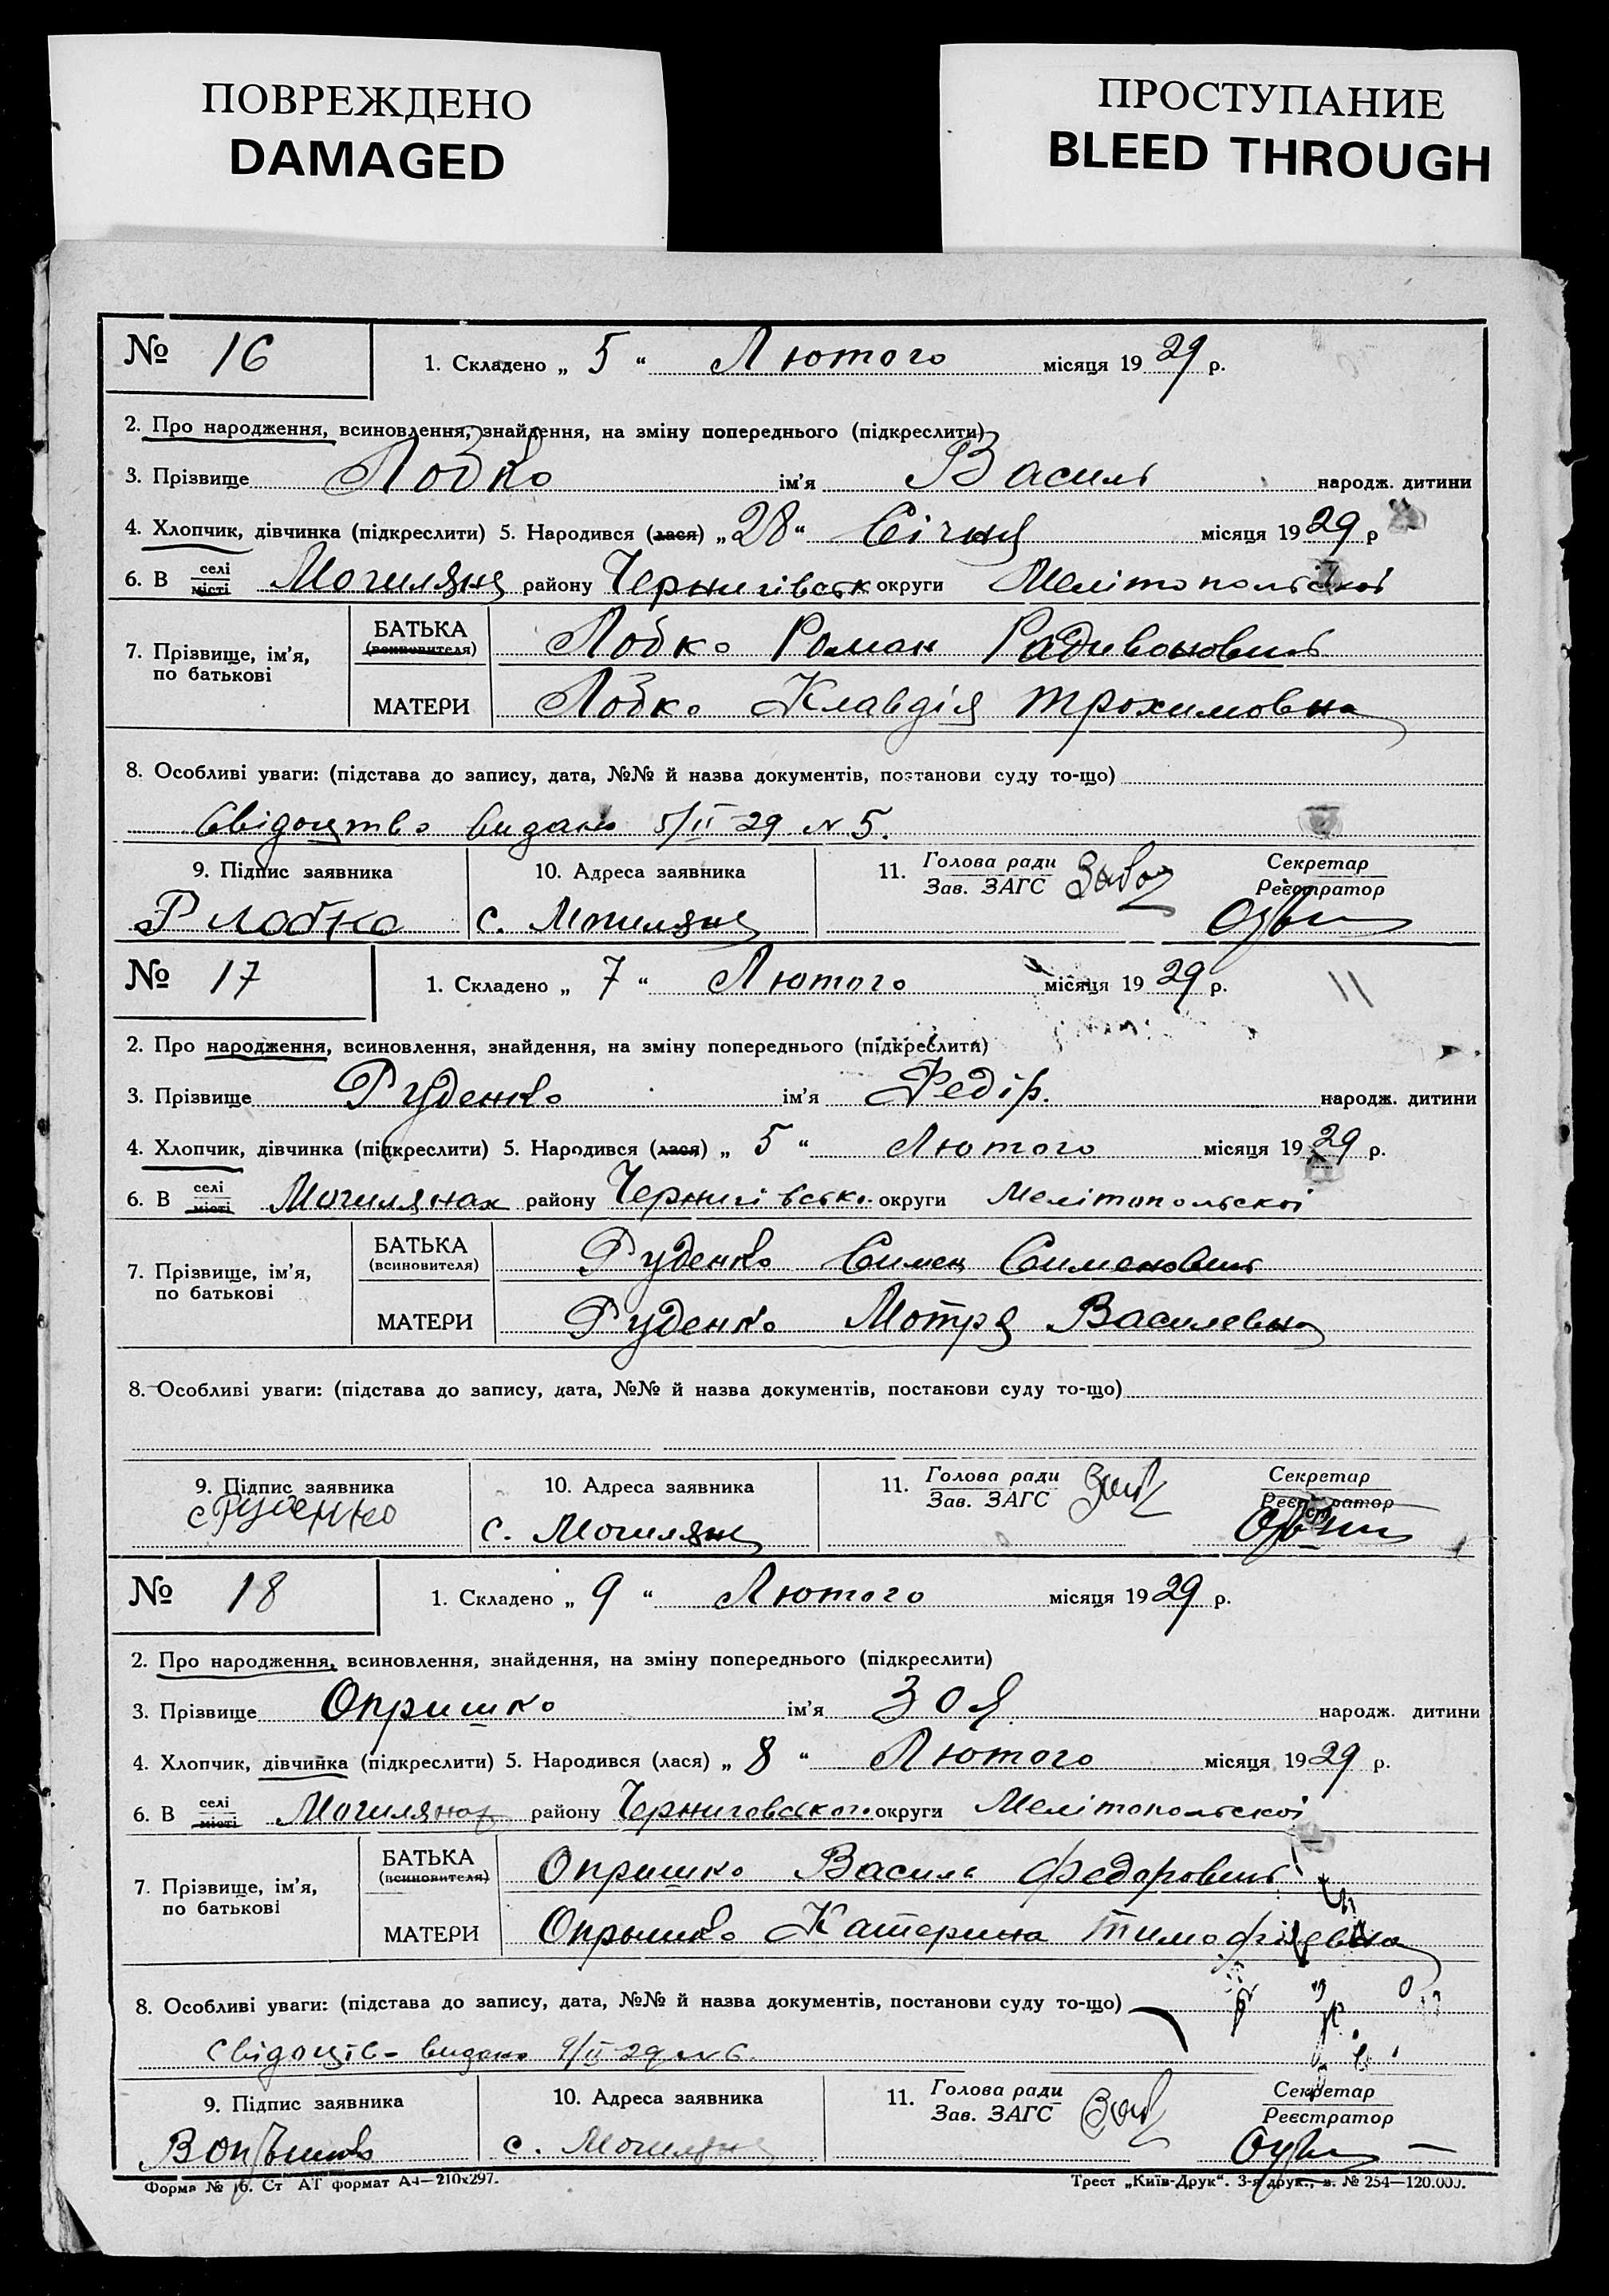 ПОВРЕЖДЕНО
DAMAGED
ПРОСТУПАНИЕ
BLEED THROUGH
№ 16
1. Складено „ 5 “ Лютого місяця 19 29 р.
2. Про народження, всиновлення, знайдення, на зміну попереднього (підкреслити)
3. Прізвище Лобко ім'я Василь народж. дитини
4. Хлопчик, дівчинка (підкреслити) 5. Народився (лася) „ 28 “ Січня місяця 19 29 р
6. В селі місті Могиляни району Чернигівськ округи Мелітопольскої
7. Прізвище, ім'я, по батькові
БАТЬКА (всиновителя) Лобко Роман Радивонович
МАТЕРИ Лобко Клавдія Трохимовна
8. Особливі уваги: (підстава до запису, дата, №№ й назва документів, постанови суду то-що)
Свідоцтво видано 5/II 29 N 5.
9. Підпис заявника
10. Адреса заявника
11. Голова ради Зав. ЗАГС
Секретар Реєстратор
Р Лобко
с. Могиляни
№ 17
1. Складено „ 7 “ Лютого місяця 19 29 р.
2. Про народження, всиновлення, знайдення, на зміну попереднього (підкреслити)
3. Прізвище Руденко ім'я Федір. народж. дитини
4. Хлопчик, дівчинка (підкреслити) 5. Народився (лася) „ 5 “ Лютого місяця 19 29 р.
6. В селі місті Могилянах району Чернигівсько. округи Мелітопольскої
7. Прізвище, ім'я, по батькові
БАТЬКА (всиновителя) Руденко Симен Сименович
МАТЕРИ Руденко Мотря Василевна
8. Особливі уваги: (підстава до запису, дата, №№ й назва документів, постанови суду то-що)
9. Підпис заявника
10. Адреса заявника
11. Голова ради Зав. ЗАГС
Секретар Реєстратор
С Руденко
с. Могиляни
№ 18
1. Складено „ 9 “ Лютого місяця 19 29 р.
2. Про народження, всиновлення, знайдення, на зміну попереднього (підкреслити)
3. Прізвище Опришко ім'я Зоя народж. дитини
4. Хлопчик, дівчинка (підкреслити) 5. Народився (лася) „ 8 “ Лютого місяця 19 29 р.
6. В селі місті Могилянах району Черниговського округи Мелітопольскої
7. Прізвище, ім'я, по батькові
БАТЬКА (всиновителя) Опришко Василь Федорович
МАТЕРИ Опришко Катерина Тимофіевна
8. Особливі уваги: (підстава до запису, дата, №№ й назва документів, постанови суду то-що)
Свідоців- видано 9/II 29 N 6.
9. Підпис заявника
10. Адреса заявника
11. Голова ради Зав. ЗАГС
Секретар Реєстратор
с. Могиляни
Форма № 16. Ст АТ формат А4—210х297.
Трест „Київ-Друк“. 3-я друк., з. № 254—120.000.